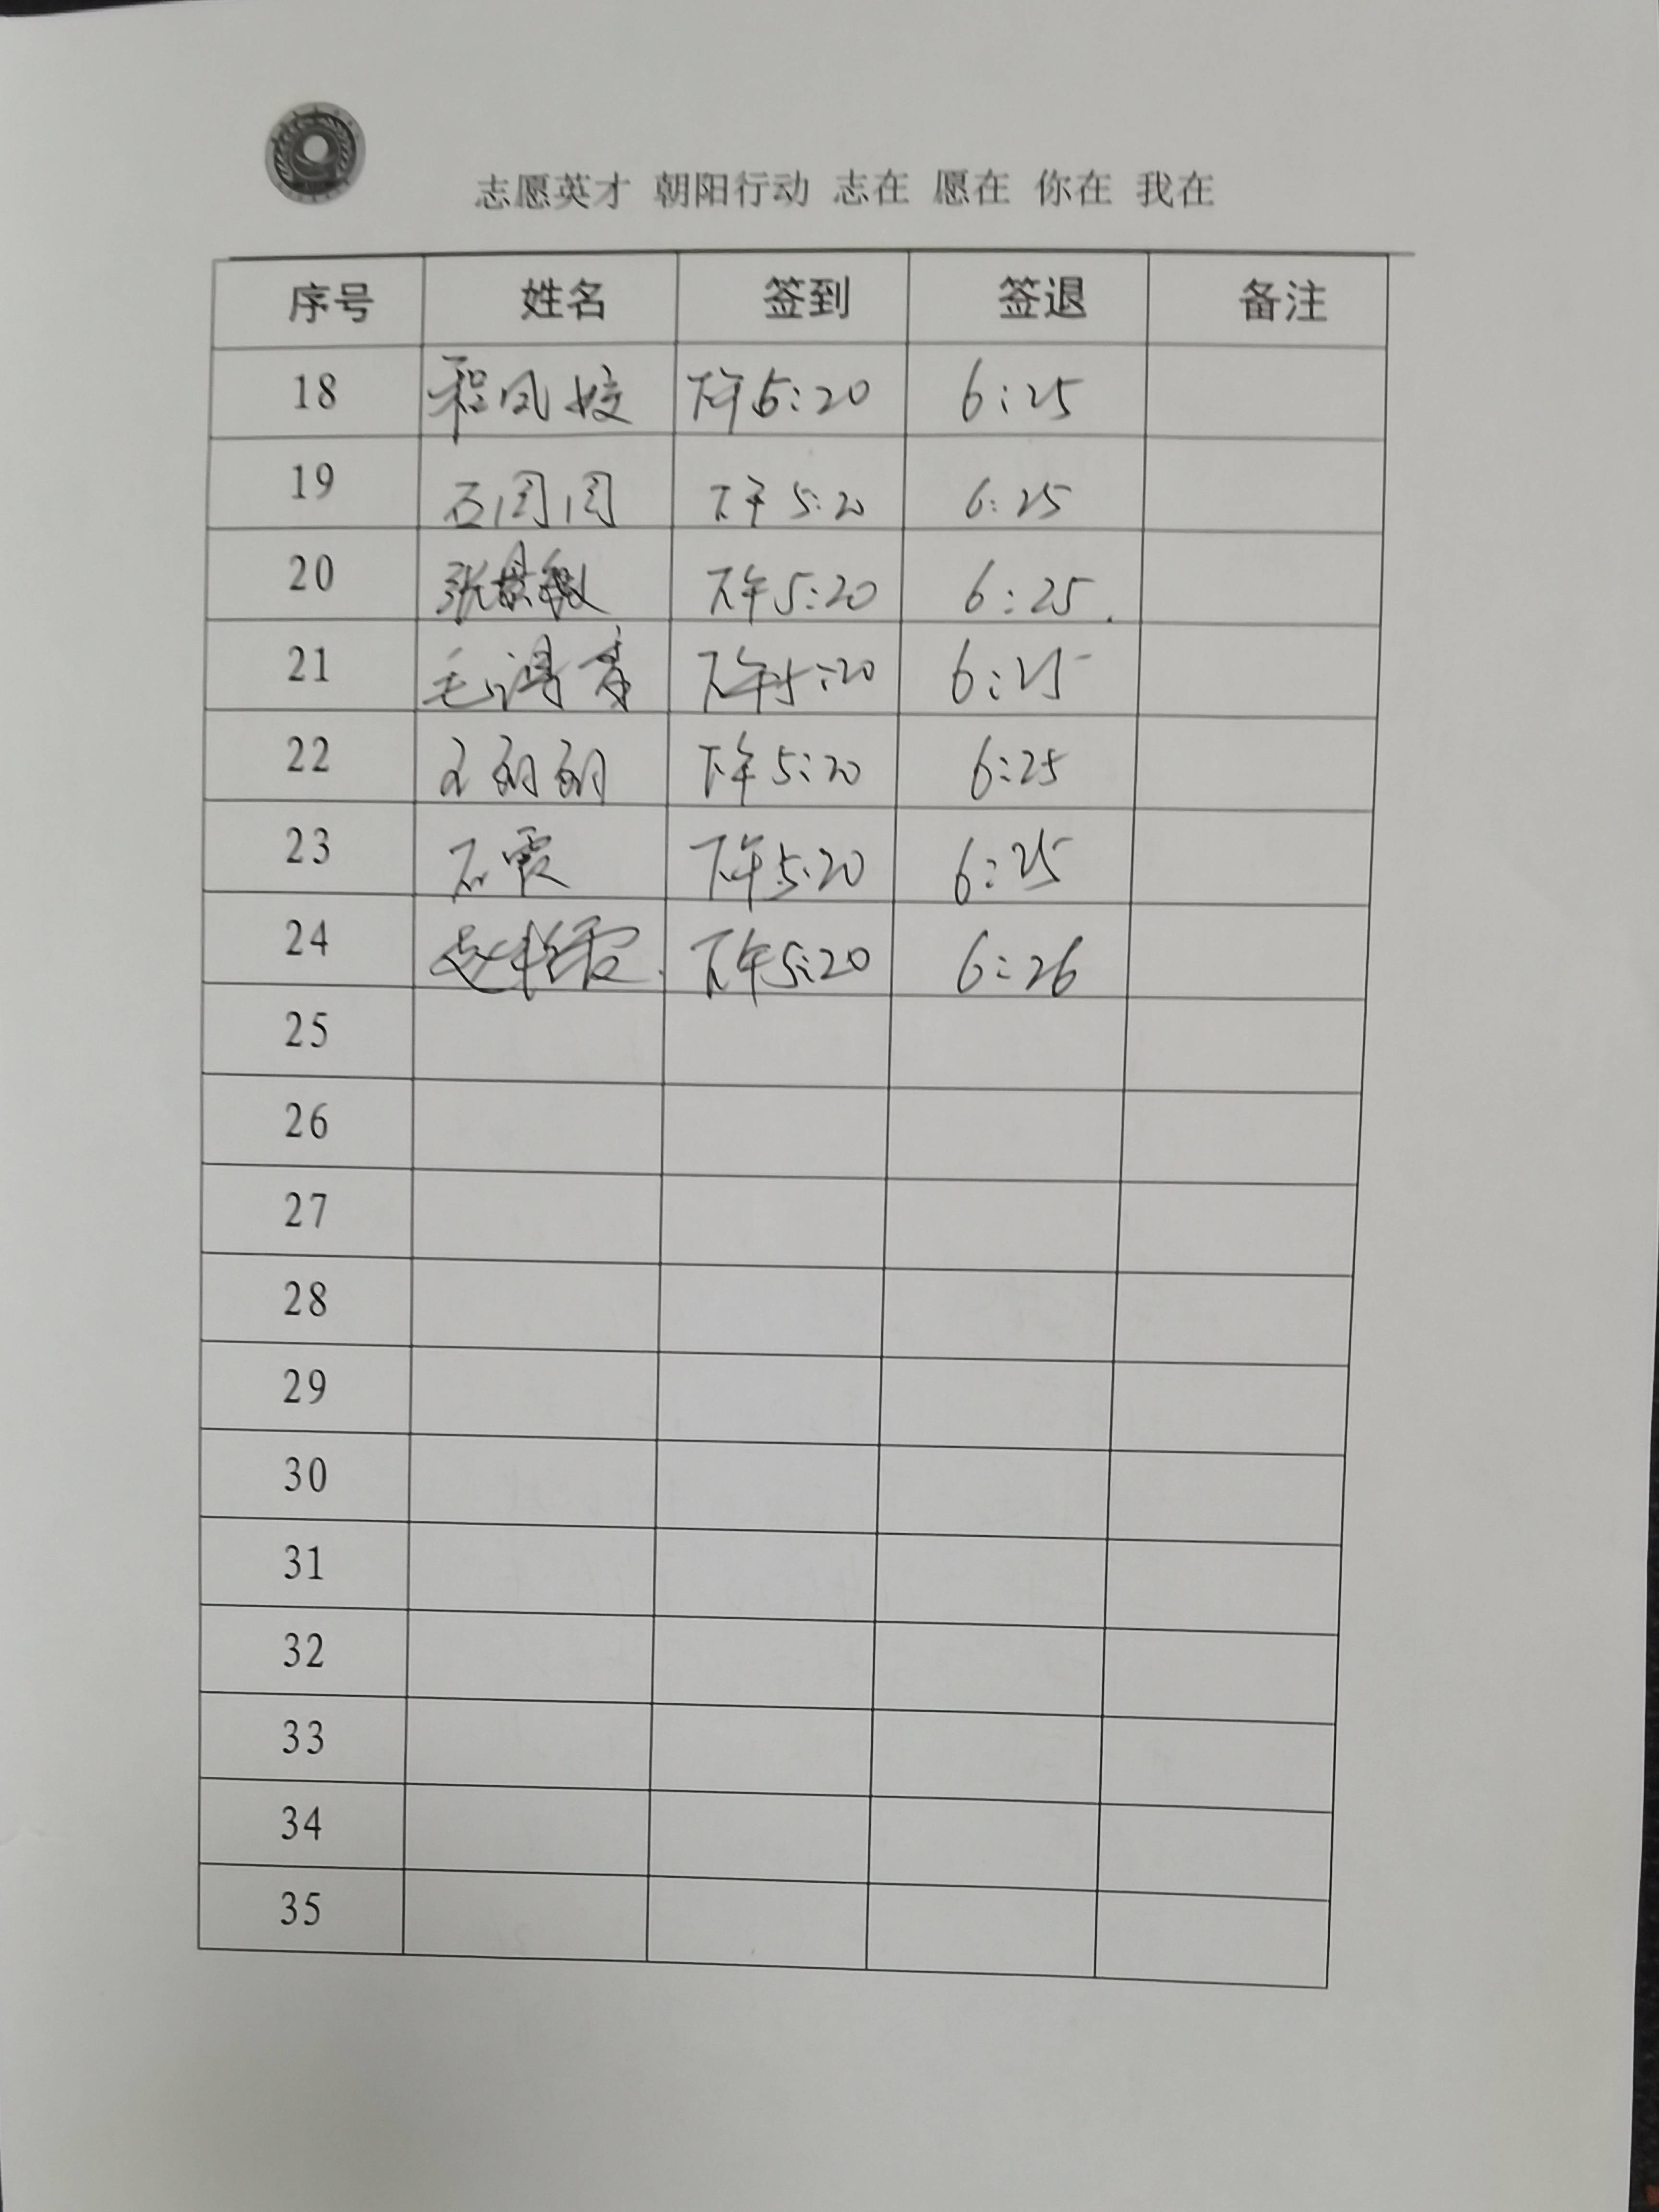 志愿英才 朝阳行动 志在 愿在 你在 我在
序号 姓名 签到 签退 备注
18 程凤姣 下午5:20 6:25
19 石闰闰 下午5:20 6:25
20 张 下午5:20 6:25.
21 毛 下午5:20 6:25
22 下午5:20 6:25
23 石霞 下午5:20 6:25
24 赵 下午5:20 6:26
25
26
27
28
29
30
31
32
33
34
35